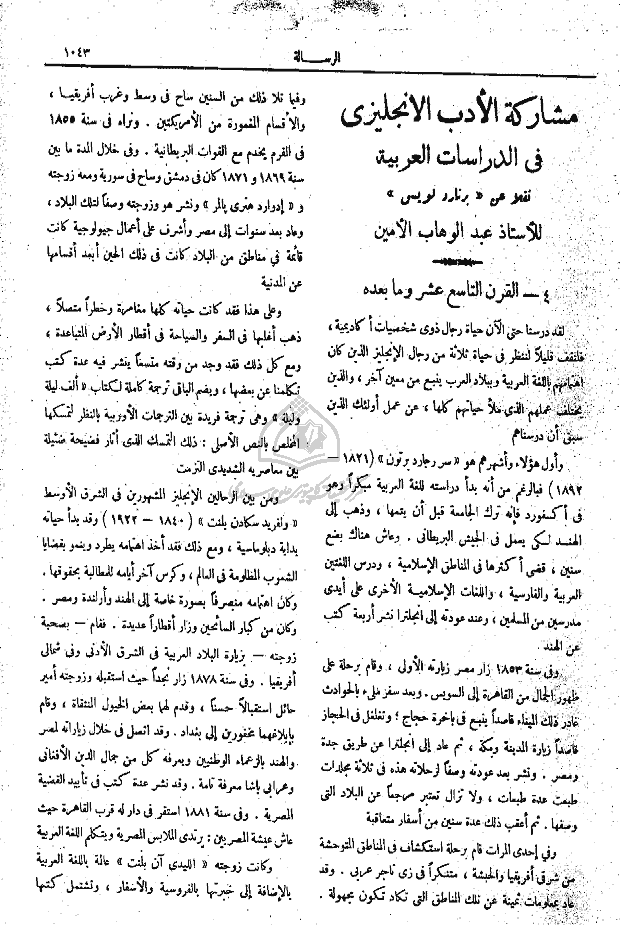 ١٠٤٣
الرسالة
مشاركة الأدب الانجليزى
فى الدراسات العربية
نقلا عن « برنارد لويس »
للأستاذ عبد الوهاب الأمين
٤ — القرن التاسع عشر وما بعده
لقد درسنا حتى الآن حياة رجال ذوى شخصيات أكاديمية ،
فلنقف قليلاً لننظر فى حياة ثلاثة من رجال الإنجليز الذين كان
اهتمامهم باللغة العربية وببلاد العرب ينبع من معين آخر ، والذين
يختلف عملهم الذى ملأ حياتهم كلها ، عن عمل أولئك الذين
سبق أن درسناهم
وأول هؤلاء وأشهرهم هو « سر رجارد برتون » (١٨٢١ —
١٨٩٢ ) فبالرغم من أنه بدأ دراسته للغة العربية مبكراً وهو
فى أكسفورد فإنه ترك الجامعة قبل أن يتمها ، وذهب إلى
الهند لكى يعمل فى الجيش البريطانى . وعاش هناك بضع
سنين ، قضى أكثرها فى المناطق الإسلامية ، ودرس اللغتين
العربية والفارسية ، واللغات الإسلامية الأخرى على أيدى
مدرسين من المسلمين ، وعند عودته إلى انجلترا نشر أربعة كتب
عن الهند
وفى سنة ١٨٥٣ زار مصر زيارته الأولى ، وقام برحلة على
ظهور الجمال من القاهرة إلى السويس . وبعد سفر ملىء بالحوادث
غادر ذلك الميناء قاصداً ينبع فى باخرة حجاج ؛ وتغلغل فى الحجاز
قاصداً زيارة المدينة ومكة ، ثم عاد إلى انجلترا عن طريق جدة
ومصر . ونشر بعد عودته وصفاً لرحلاته هذه فى ثلاثة مجلدات
طبعت عدة طبعات ، ولا تزال تعتبر مرجعاً عن البلاد التى
وصفها . ثم أعقب ذلك عدة سنين من أسفار متعاقبة
وفى إحدى المرات قام برحلة استكشاف فى المناطق المتوحشة
من شرقى أفريقيا والحبشة ، متنكراً فى زى تاجر عربى . وقد
عاد بمعلومات ثمينة عن تلك المناطق التى تكاد تكون مجهولة .
وفيما تلا ذلك من السنين ساح فى وسط وغرب أفريقيا ،
والأقسام المغمورة من الأمريكتين . ونراه فى سنة ١٨٥٥
فى القرم يخدم مع القوات البريطانية . وفى خلال المدة ما بين
سنة ١٨٦٩ و ١٨٧١ كان فى دمشق وساح فى سورية ومعه زوجته
و « إدوارد هنرى پالمر » ونشر هو وزوجته وصفاً لتلك البلاد ،
وعاد بعد سنوات إلى مصر وأشرف على أعمال جيولوجية كانت
قائمة فى مناطق من البلاد كانت فى ذلك الحين أبعد أقسامها
عن المدنية
وعلى هذا فقد كانت حياته كلها مغامرة وخطراً متصلاً ،
ذهب أغلبها فى السفر والسياحة فى أقطار الأرض المتباعدة ،
ومع كل ذلك فقد وجد من وقته متسعاً ينشر فيه عدة كتب
تكلمنا عن بعضها ، ويضم الباقى ترجمة كاملة لكتاب « ألف ليلة
وليلة » وهى ترجمة فريدة بين الترجمات الأوربية بالنظر لتمسكها
المخلص بالنص الأصلى : ذلك التمسك الذى أثار فضيحة ضئيلة
بين معاصريه الشديدى التزمت
ومن بين الرحالين الإنجليز المشهورين فى الشرق الأوسط
« ولفريد سكادن بلنت » (١٨٤٠ — ١٩٢٢ ) وقد بدأ حياته
بداية دبلوماسية ، ومع ذلك فقد أخذ اهتمامه يطرد وينمو بقضايا
الشعوب المظلومة فى العالم ، وكرس آخر أيامه للمطالبة بحقوقها .
وكان اهتمامه منصرفاً بصورة خاصة إلى الهند وأرلندة ومصر .
وكان من كبار السائحين وزار أقطاراً عديدة . فقام — بصحبة
زوجته — بزيارة البلاد العربية فى الشرق الأدنى وفى شمالى
أفريقيا . وفى سنة ١٨٧٨ زار نجداً حيث استقبله وزوجته أمير
حائل استقبالاً حسناً ، وقدم لها بعض الخيول المنتقاة ، وقام
بإبلاغهما مخفورين إلى بغداد . وقد اتصل فى خلال زياراته لمصر
والهند بالزعماء الوطنيين وبمعرفه كل من جمال الدين الأفغانى
وعرابى باشا معرفة تامة . وقد نشر عدة كتب فى تأييد القضية
المصرية . وفى سنة ١٨٨١ استقر فى دار له قرب القاهرة حيث
عاش عيشة المصريين : يرتدى الملابس المصرية ويتكلم اللغة العربية
وكانت زوجته « الليدى آن بلنت » عالمة باللغة العربية
بالإضافة إلى خبرتها بالفروسية والأسفار ، وتشتمل كتبها